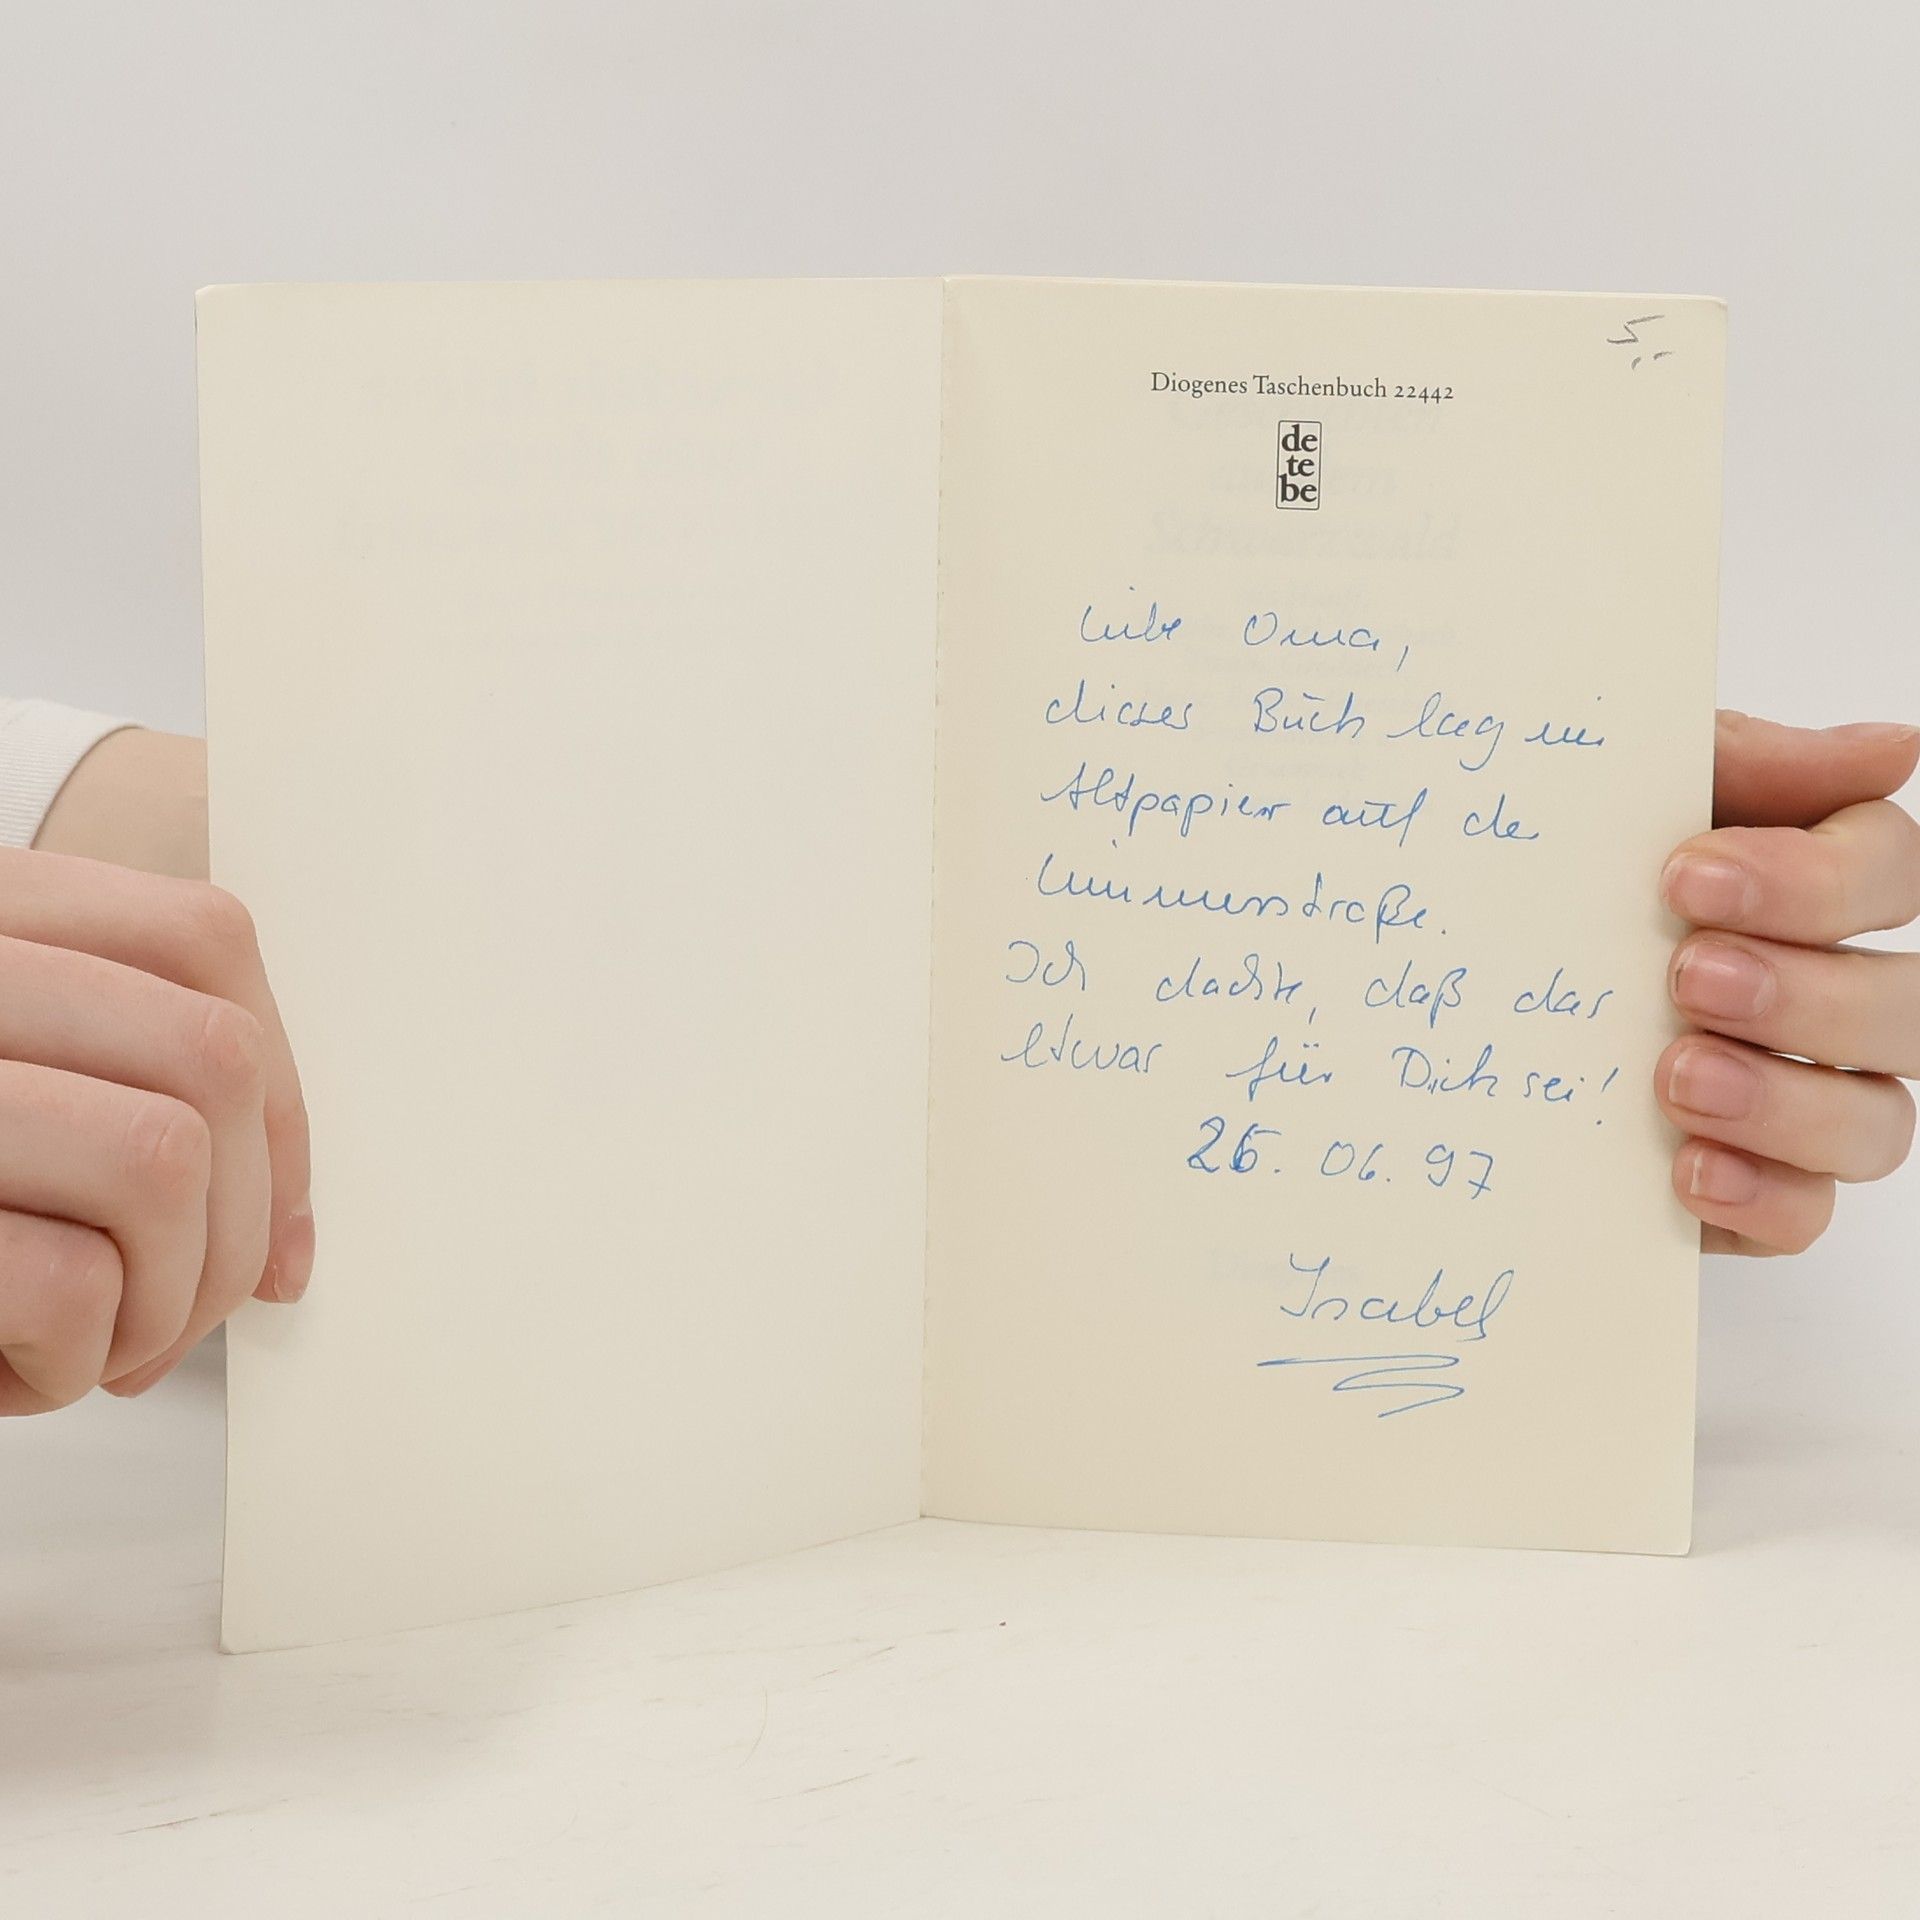 5,-
Diogenes Taschenbuch 22442
de
te
be
Liebe Oma,
dieses Buch lag im
Altpapier auf der
Ich dachte, daß das
etwas für Dich sei!
26. 06. 97
Isabel